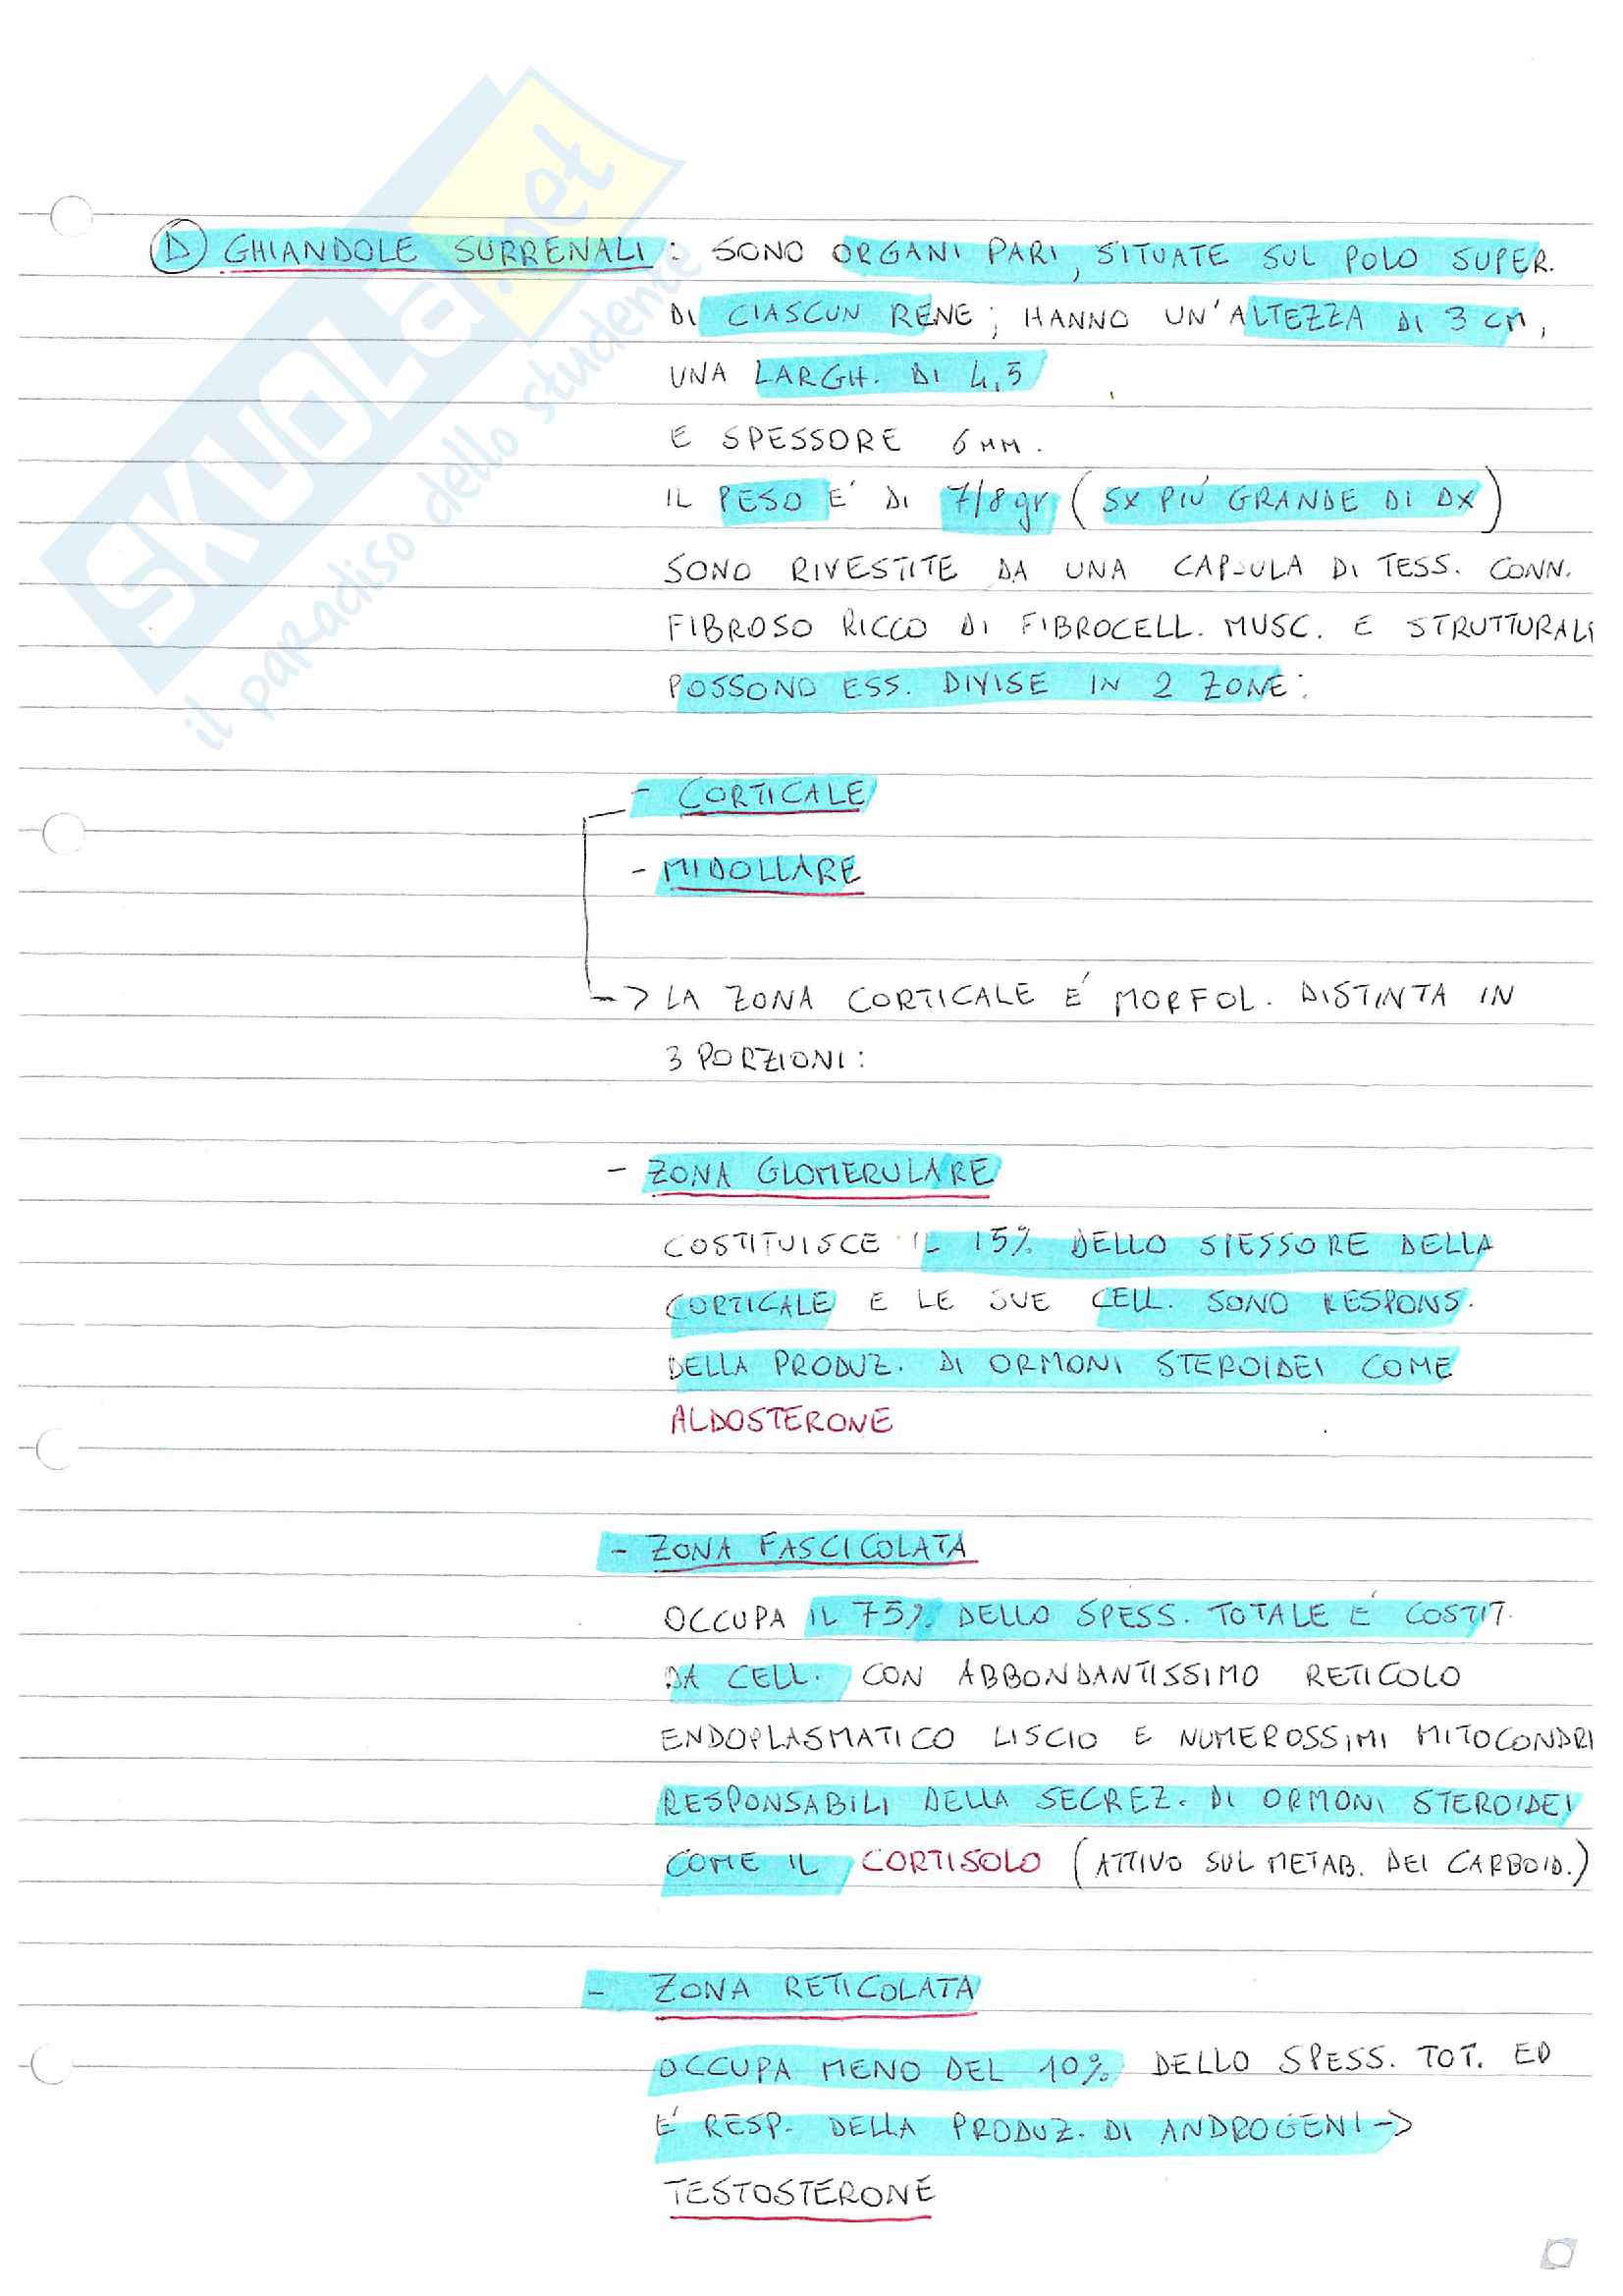 SKUOLA.net
il paradiso dello studente
D GHIANDOLE SURRENALI : SONO ORGANI PARI, SITUATE SUL POLO SUPER.
DI CIASCUN RENE ; HANNO UN'ALTEZZA DI 3 CM,
UNA LARGH. DI 4,5
E SPESSORE 6 MM.
IL PESO E' DI 7/8 gr ( SX PIÙ GRANDE DI DX )
SONO RIVESTITE DA UNA CAPSULA DI TESS. CONN.
FIBROSO RICCO DI FIBROCELL. MUSC. E STRUTTURALI
POSSONO ESS. DIVISE IN 2 ZONE:
- CORTICALE
- MIDOLLARE
-> LA ZONA CORTICALE E' MORFOL. DISTINTA IN
3 PORZIONI:
- ZONA GLOMERULARE
COSTITUISCE IL 15% DELLO SPESSORE DELLA
CORTICALE E LE SUE CELL. SONO RESPONS.
DELLA PRODUZ. DI ORMONI STEROIDEI COME
ALDOSTERONE
- ZONA FASCICOLATA
OCCUPA IL 75% DELLO SPESS. TOTALE E' COSTIT.
DA CELL. CON ABBONDANTISSIMO RETICOLO
ENDOPLASMATICO LISCIO E NUMEROSSIMI MITOCONDRI
RESPONSABILI DELLA SECREZ. DI ORMONI STEROIDEI
COME IL CORTISOLO (ATTIVO SUL METAB. DEI CARBOID.)
- ZONA RETICOLATA
OCCUPA MENO DEL 10% DELLO SPESS. TOT. ED
E' RESP. DELLA PRODUZ. DI ANDROGENI ->
TESTOSTERONE